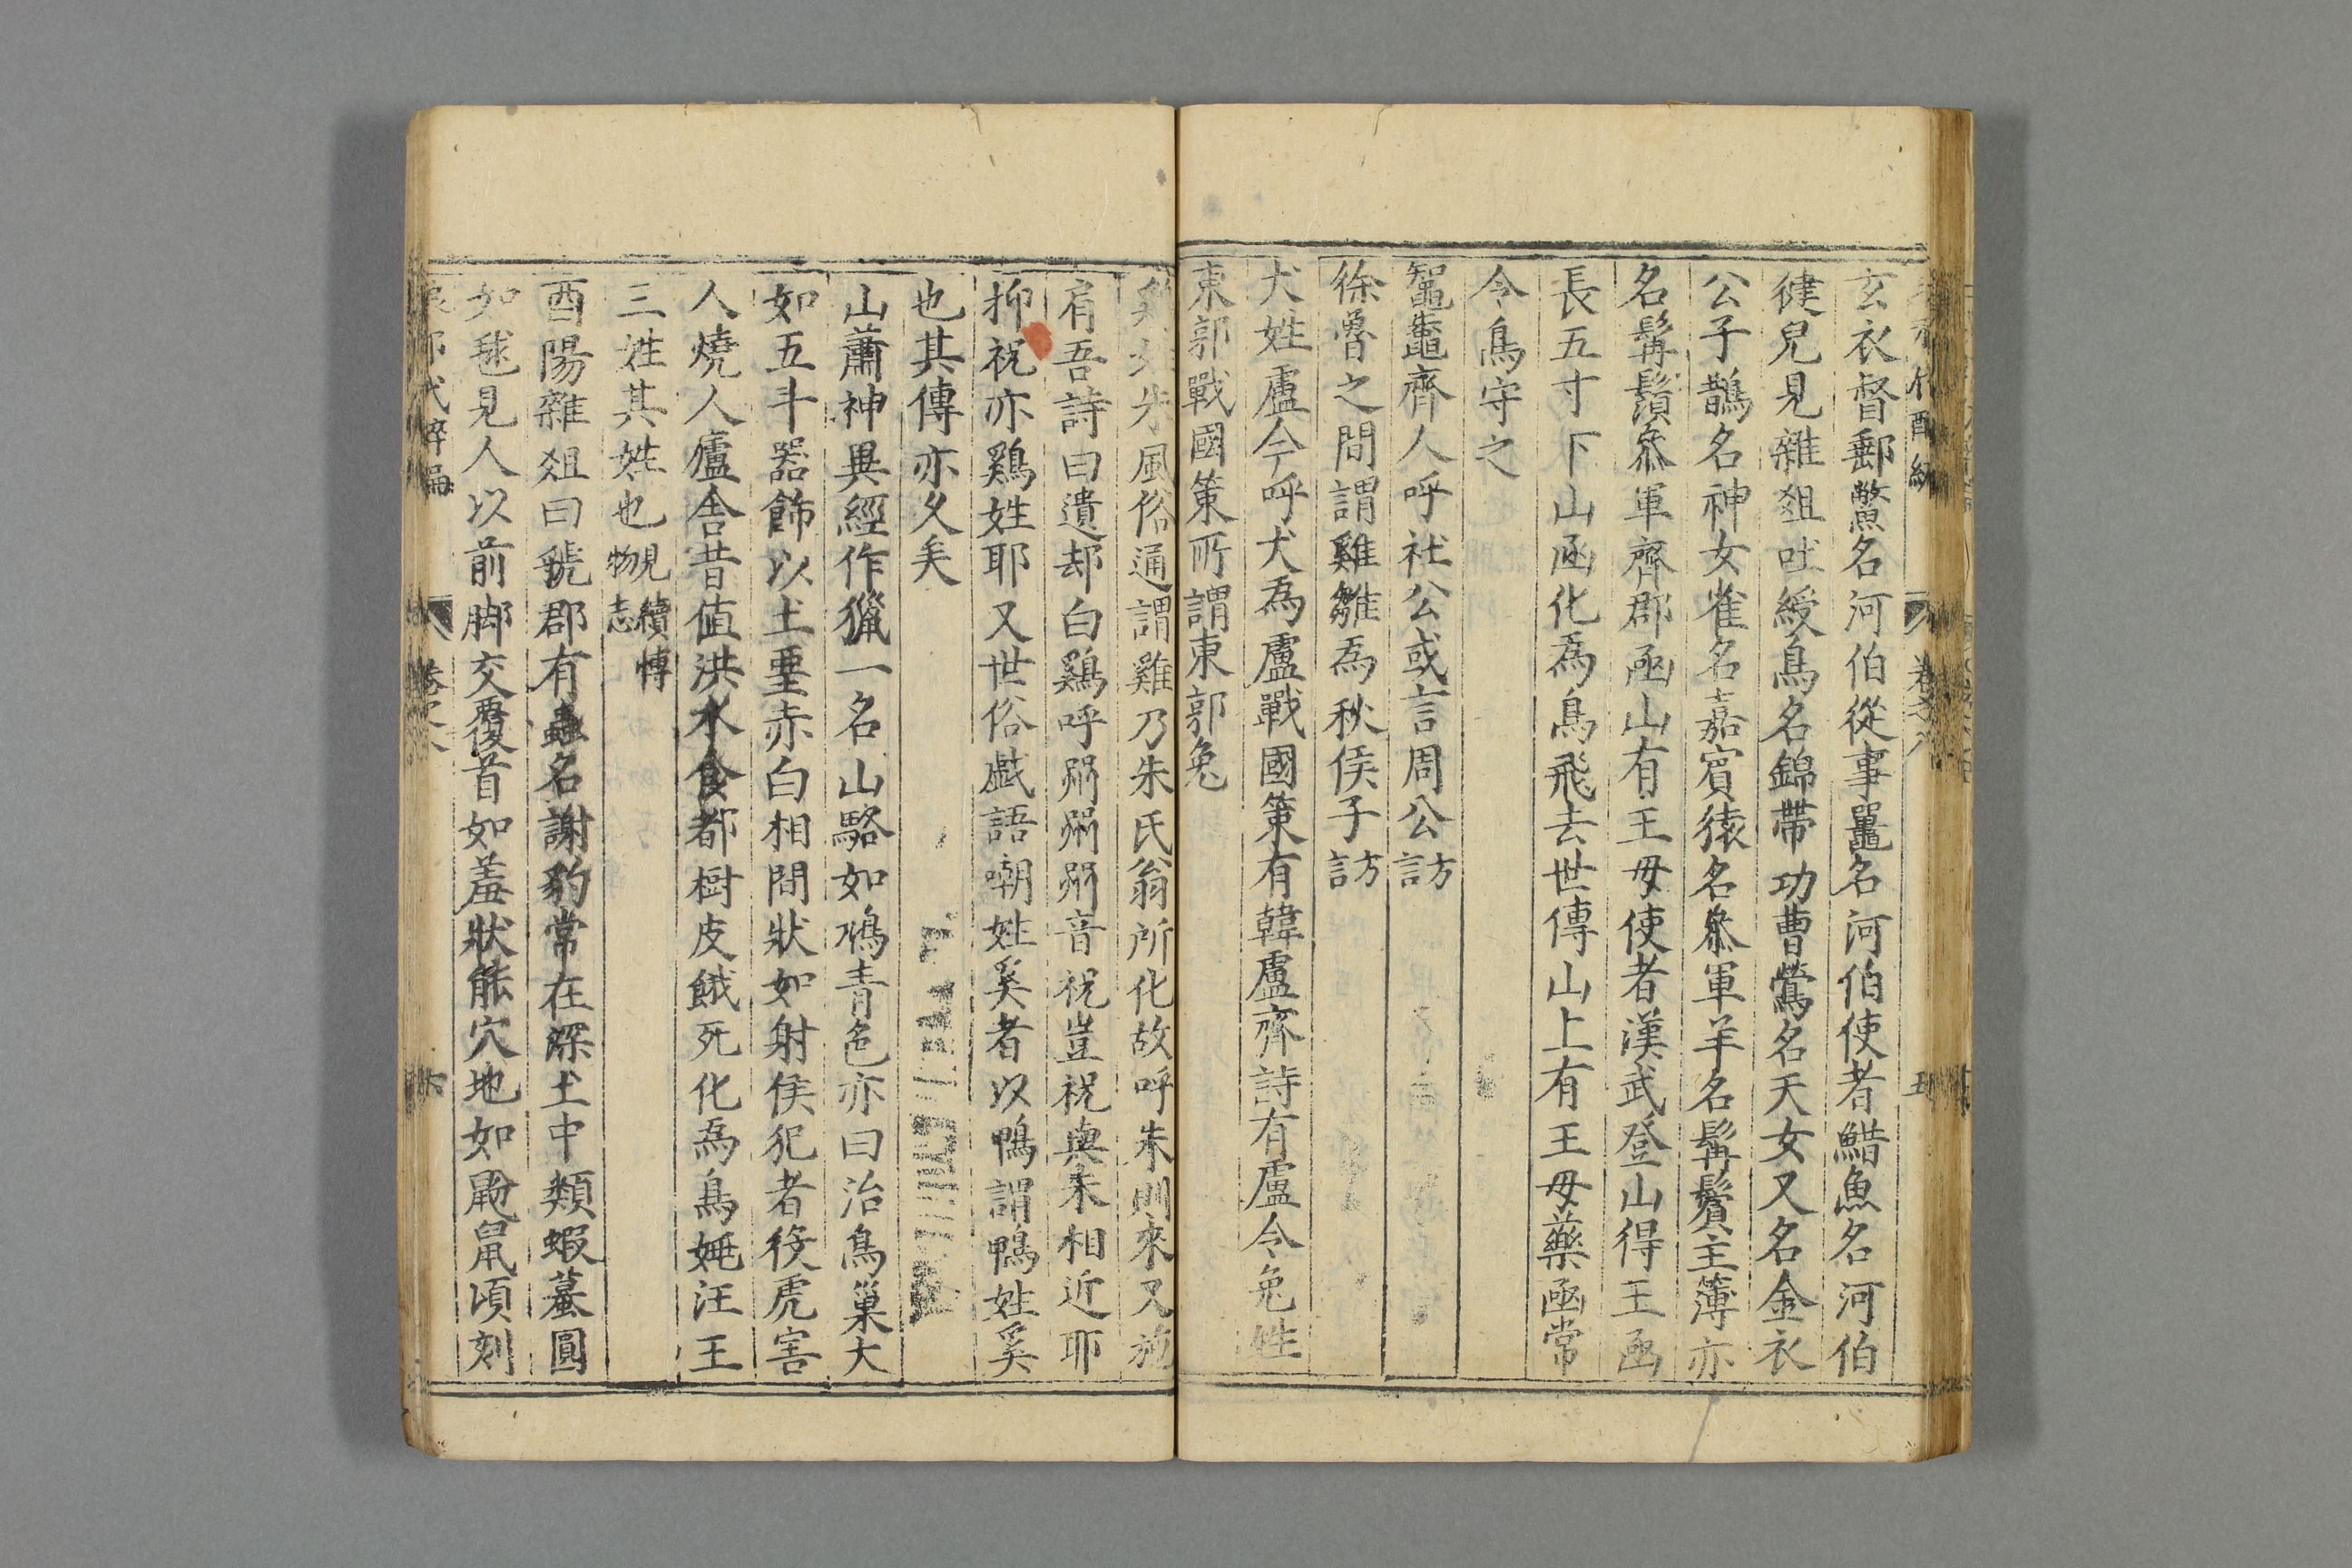 玄衣督郵鱉名河伯從事鼉名河伯使者鯌魚名河伯
徤兒見雜俎吐綬鳥名錦帶功曹鶯名天女又名金衣
公子鵲名神女雀名嘉賓猿名叅軍羊名髯鬚主簿亦
名髯鬚叅軍齊郡凾山有王母使者漢武登山得玉凾
長五寸下山凾化為鳥飛去世傳山上有王母藥凾常
令鳥守之
鼅鼄齊人呼社公或言周公訪
徐魯之間謂雞雛為秋侯子訪
犬姓盧今呼犬為盧戰國策有韓盧齊詩有盧令兔姓
東郭戰國策所謂東郭兔
風俗通謂雞乃朱氏翁所化故呼朱則來又施
肩吾詩曰遺却白鷄呼粥粥粥音祝豈祝與朱相近耶
抑祝亦鷄姓耶又世俗戱語嘲姓奚者以鴨謂鴨姓奚
也其傳亦久矣
山蕭神異經作獵一名山駱如鳩青色亦曰治鳥巢大
如五斗器飾以土堊赤白相間狀如射侯犯者役虎害
人燒人廬舍昔值洪水食都樹皮餓死化為鳥
汪王
三姓其姓也見續博物志
酉陽雜俎曰虢郡有蟲名謝豹常在深土中類蝦蟇圓
如毬見人以前脚交覆首如羞狀能穴地如鼢鼠頃刻